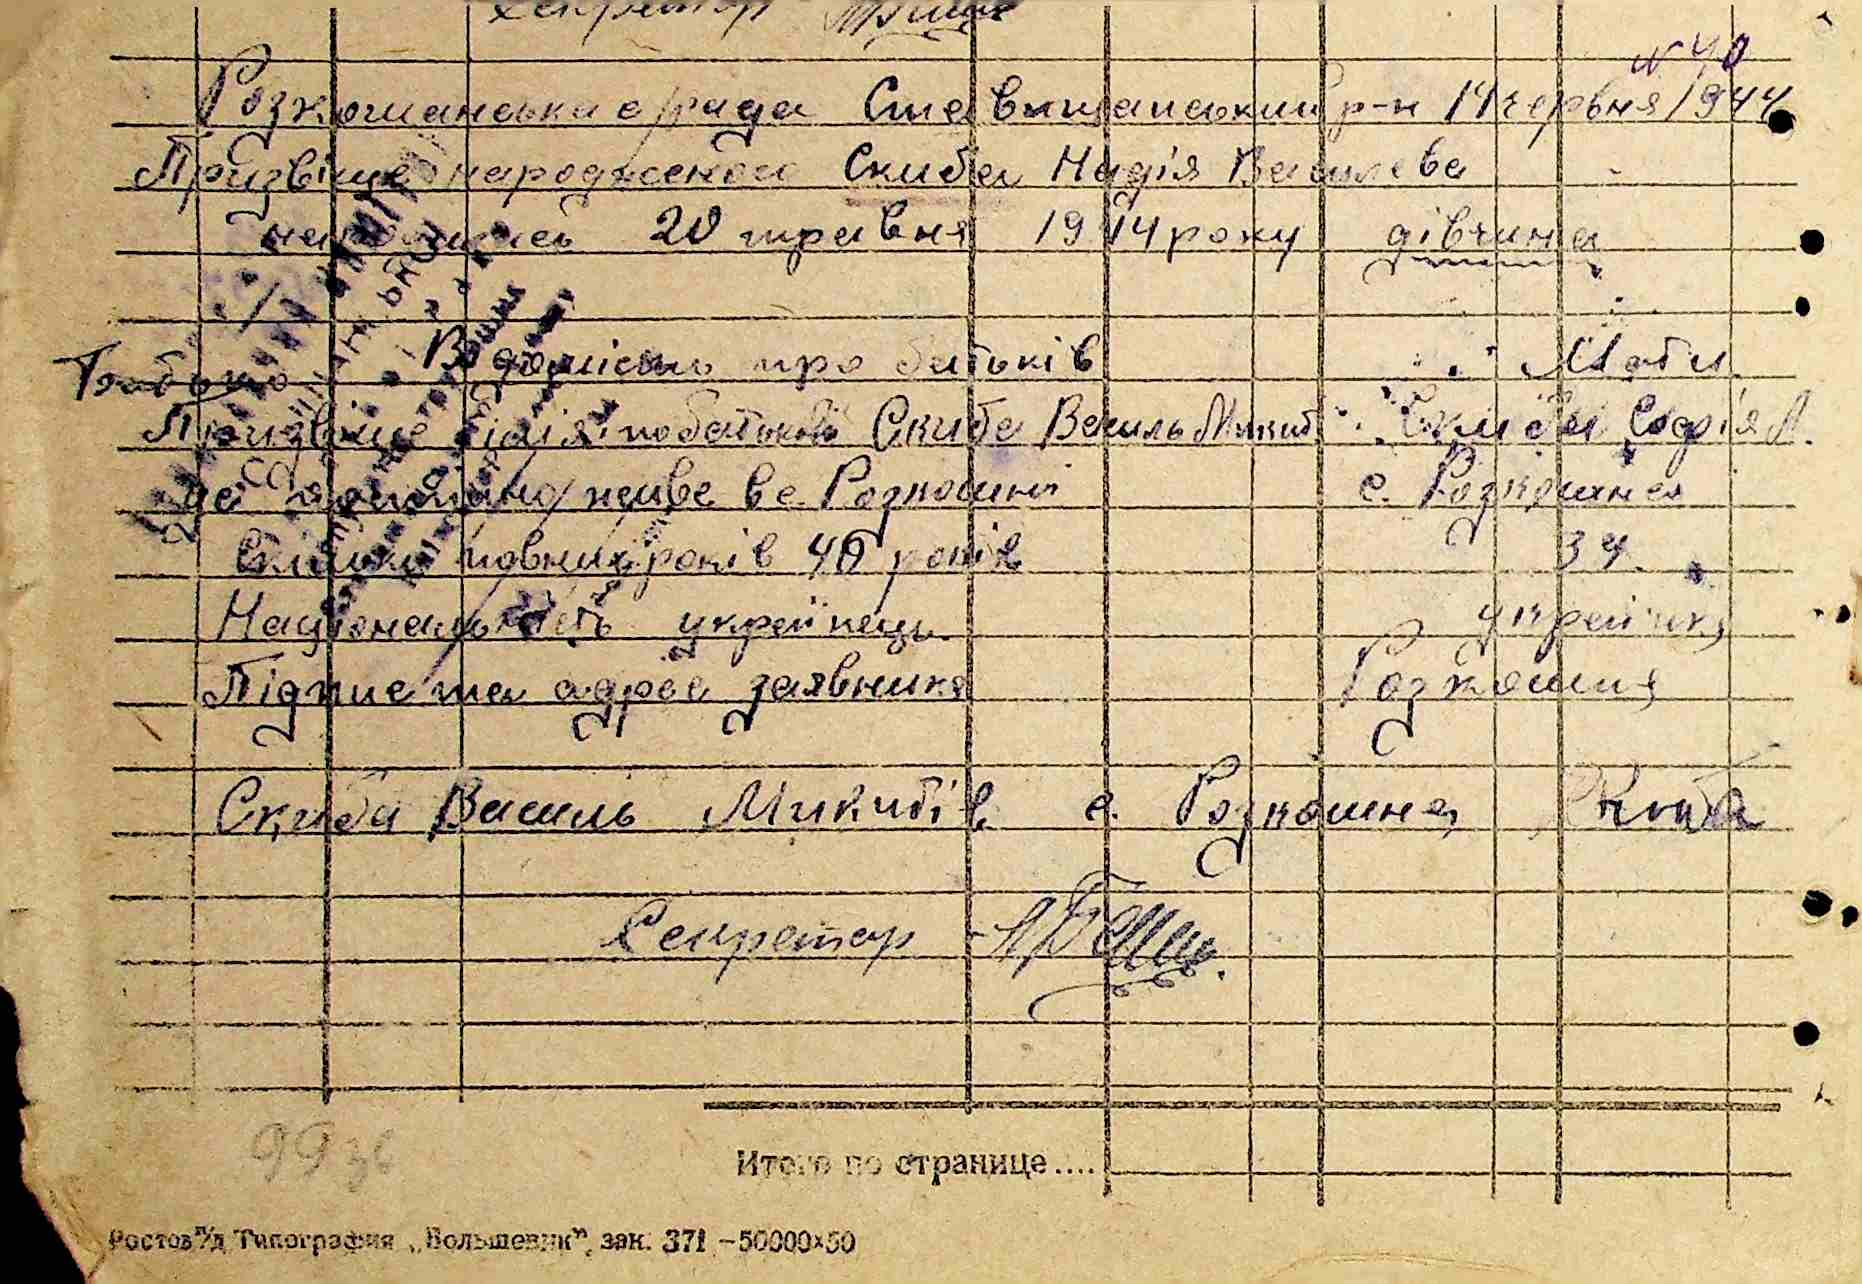 Секретар
№ 40
Розкошанська с/рада Ставищанський р-н 14 червня 1944
Призвіще народженого Скиба Надія Василева
народилась 20 травня 1944 року дівчина
Відомість про батьків Мати
Батько
Призвіще імія по батькові Скиба Василь Микит Скиба Софія М.
де постійно живе в с. Розкошні с. Розкошня
Скільки повних років 40 років 34.
Національність украйнець украйнка
Підпис та адрес заявника Розкошня
Скиба Василь Микитів с. Розкошня Скиба
Секретар
99зв
Итого по странице....
Ростов н/д Типография „Большевик", зак. 371 –50000×50